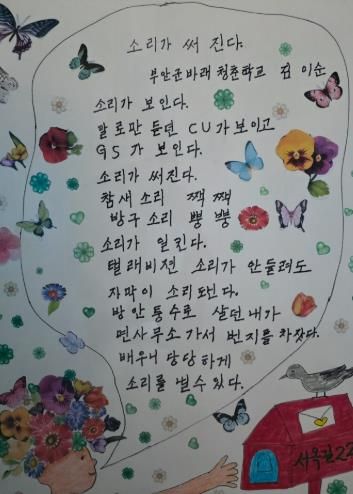 소리가 써 진다.
부안군바래 청춘학교 김 이순
소리가 보인다.
말로만 듣던 CU가 보이고
GS 가 보인다.
소리가 써진다.
참새 소리 짹 짹
방구 소리 뿡 뿡
소리가 일킨다.
텔래비젼 소리가 안들려도
자막이 소리되넌다.
방안퉁수로 살던 내가
면사무소가서 번지를 차잤다.
배우니 당당하게
소리를 낼수있다.
서옥길22